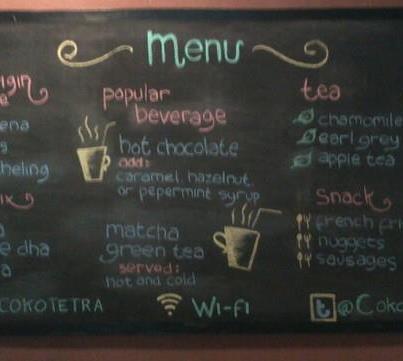 menu
igin
e
ena
s
heling
ix
a
e dha
a
popular
beverage
hot chocolate
add:
caramel, hazelnut,
or pepermint syrup
matcha
green tea
served:
hot and cold
tea
chamomile
earl grey
apple tea
Snack
french fri
nuggets
sausages
COKOTETRA
Wi-fi
t @Coko